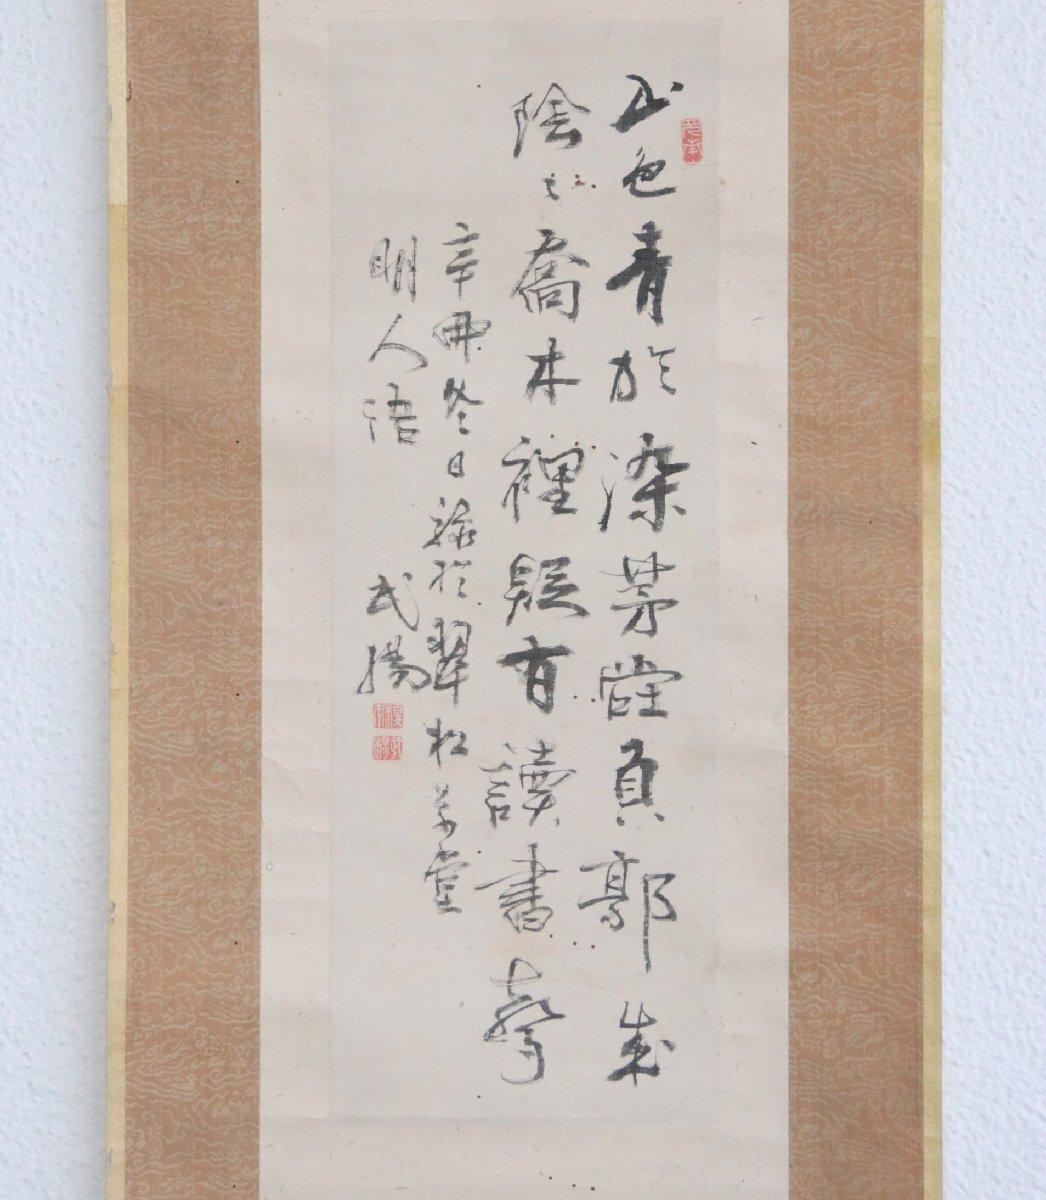 山色青於染茅堂負郭成
陰々喬木裡疑有讀書聲
辛卯冬日 於翠松草堂
明人語 武陽